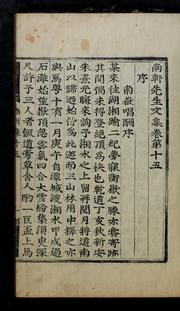 南軒先生文集卷第十五
序
南嶽唱酬序
某來往湖湘踰二紀夢寐衡嶽之勝亦嘗寄跡
其間獨未得登絶頂爲快也乾道丁亥秋新安
朱熹元晦來訪予湘水之上留再閱月將道南
山以歸迺始偕爲此遊而三山林用中擇之亦
與焉粤十有一月庚午自潭城渡湘水甲戌過
石灘始望嶽頂忽雲氣四合大雪紛集須臾深
尺許予三人者飯道旁草舍人酌一巨盃上馬